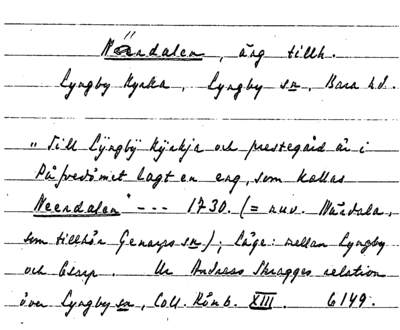 Nändalen, äng tillh.
Lyngby kyrka, Lyngby sn, Bara hd.
"Till Lÿngbÿ kÿrkja och prestegård är i
Påfvedömet lagt en eng, som kallas
Neendalen" --- 1730. (= nuv.
som tillhör Genarps sn); läge: mellan Lyngby
och Ur Andreas Skragges relation
över Lyngby sn, Coll. Rönb. XIII. 6149.